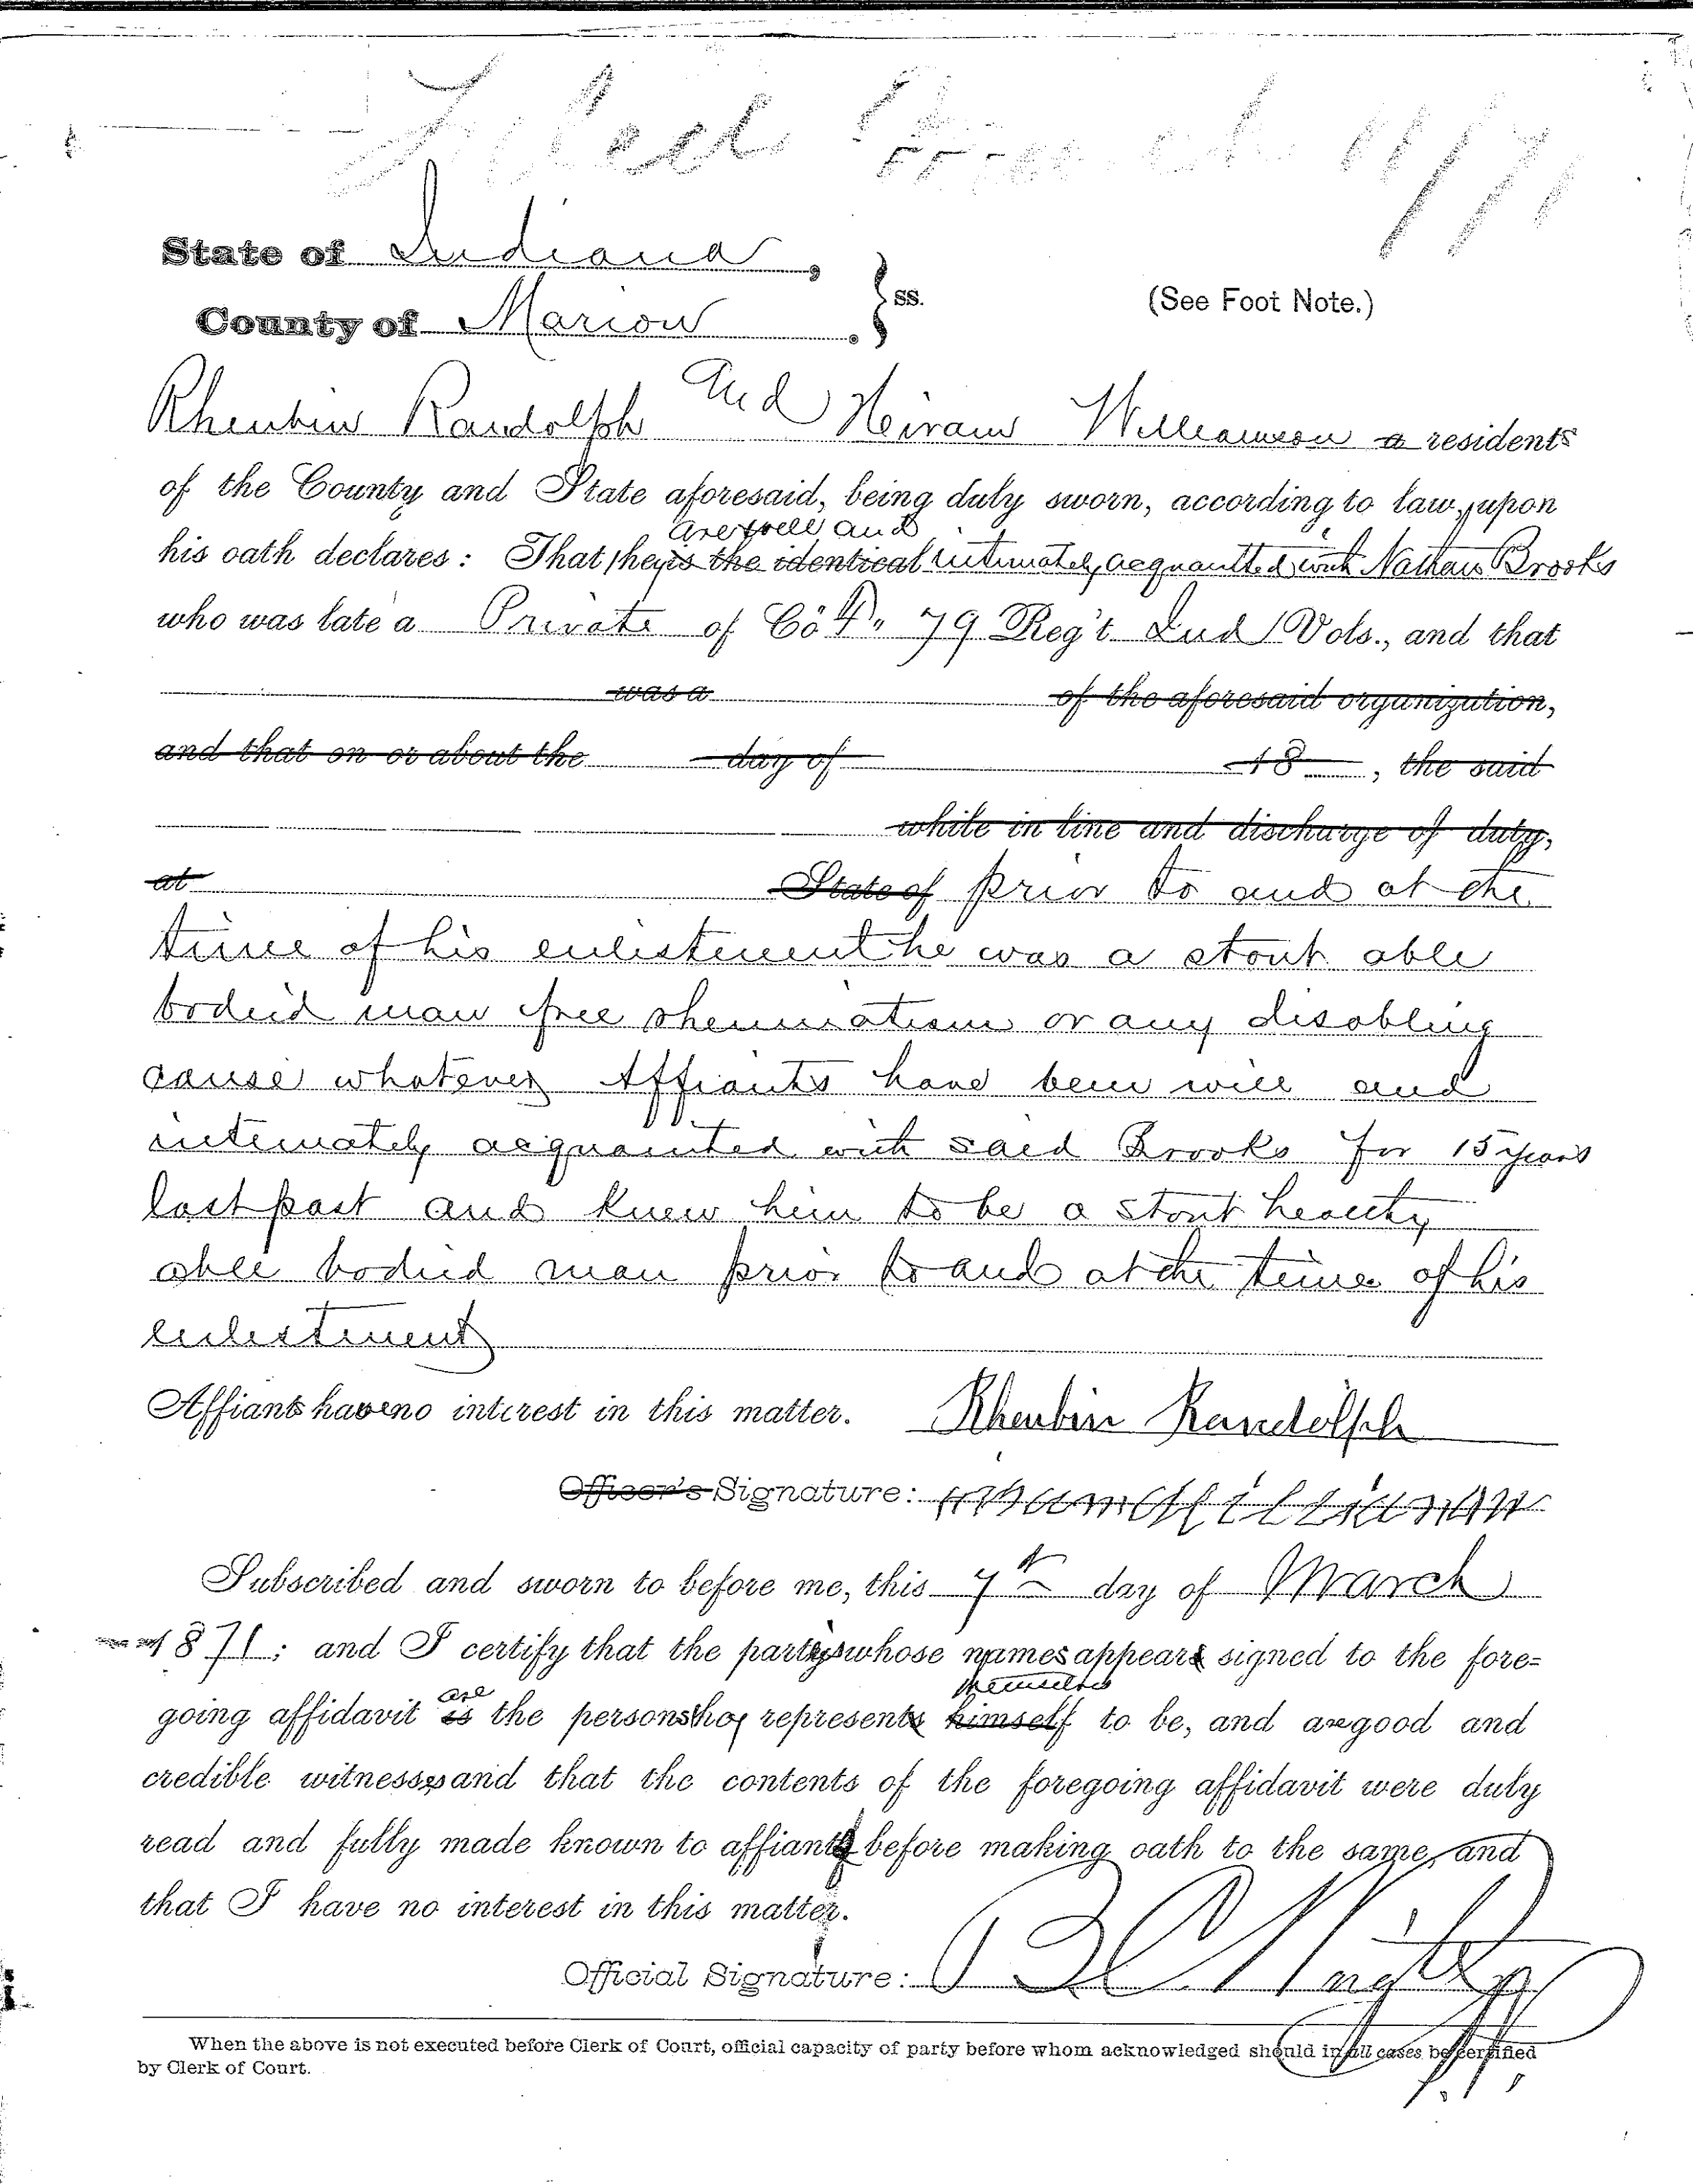 Filed March 11/71
State of Indiana,
County of Marion . } ss. (See Foot Note.)
Rheubin Randolph and Heiram Williamson a residents
of the County and State aforesaid, being duly sworn, according to law, upon
are well and
his oath declares: That they is the identical intimately acquantted with Nathan Brooks
who was late a Private of Co F, 79 Reg't Ind Vols., and that
was a of the aforesaid organization,
and that on or about the day of 18 , the said
while in line and discharge of duty,
at State of prior to and at the
time of his enlistment he was a stout able
bodied man free rheumatism or any disabling
cause whatever Affiants have been well and
intimately acquainted with said Brooks for 15 years
last past and knew him to be a stout healthy
able bodied man prior to and at the time of his
enlistment
Affiants have no interest in this matter. Rheubin Randolph
Officer's Signature:
Subscribed and sworn to before me, this 7th day of March
1871; and I certify that the partys whose names appears signed to the fore-
are themselves
going affidavit is the persons they represents himself to be, and are good and
credible witnesses and that the contents of the foregoing affidavit were duly
read and fully made known to affiants before making oath to the same, and
that I have no interest in this matter.
Official Signature:
When the above is not executed before Clerk of Court, official capacity of party before whom acknowledged should in all cases be certified
by Clerk of Court.